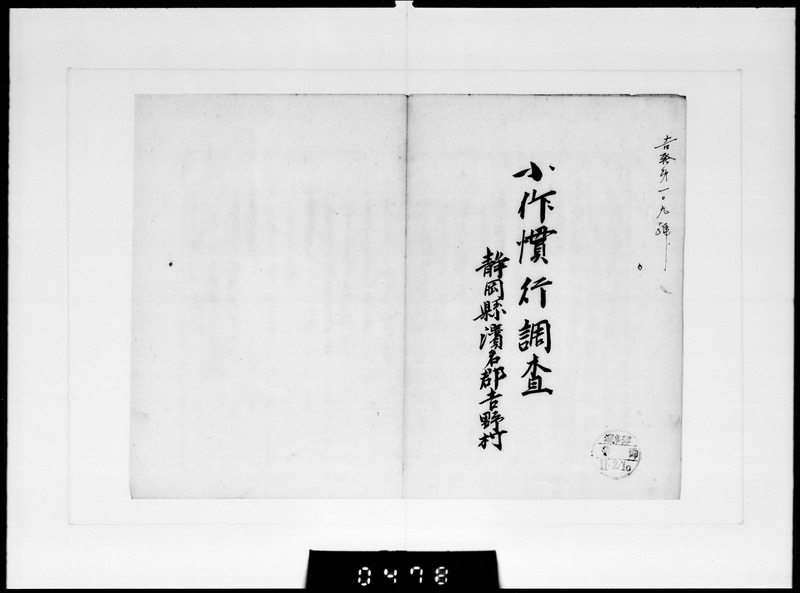 吉発第一〇九號
小作慣行調査
静岡縣濱名郡吉野村
0478